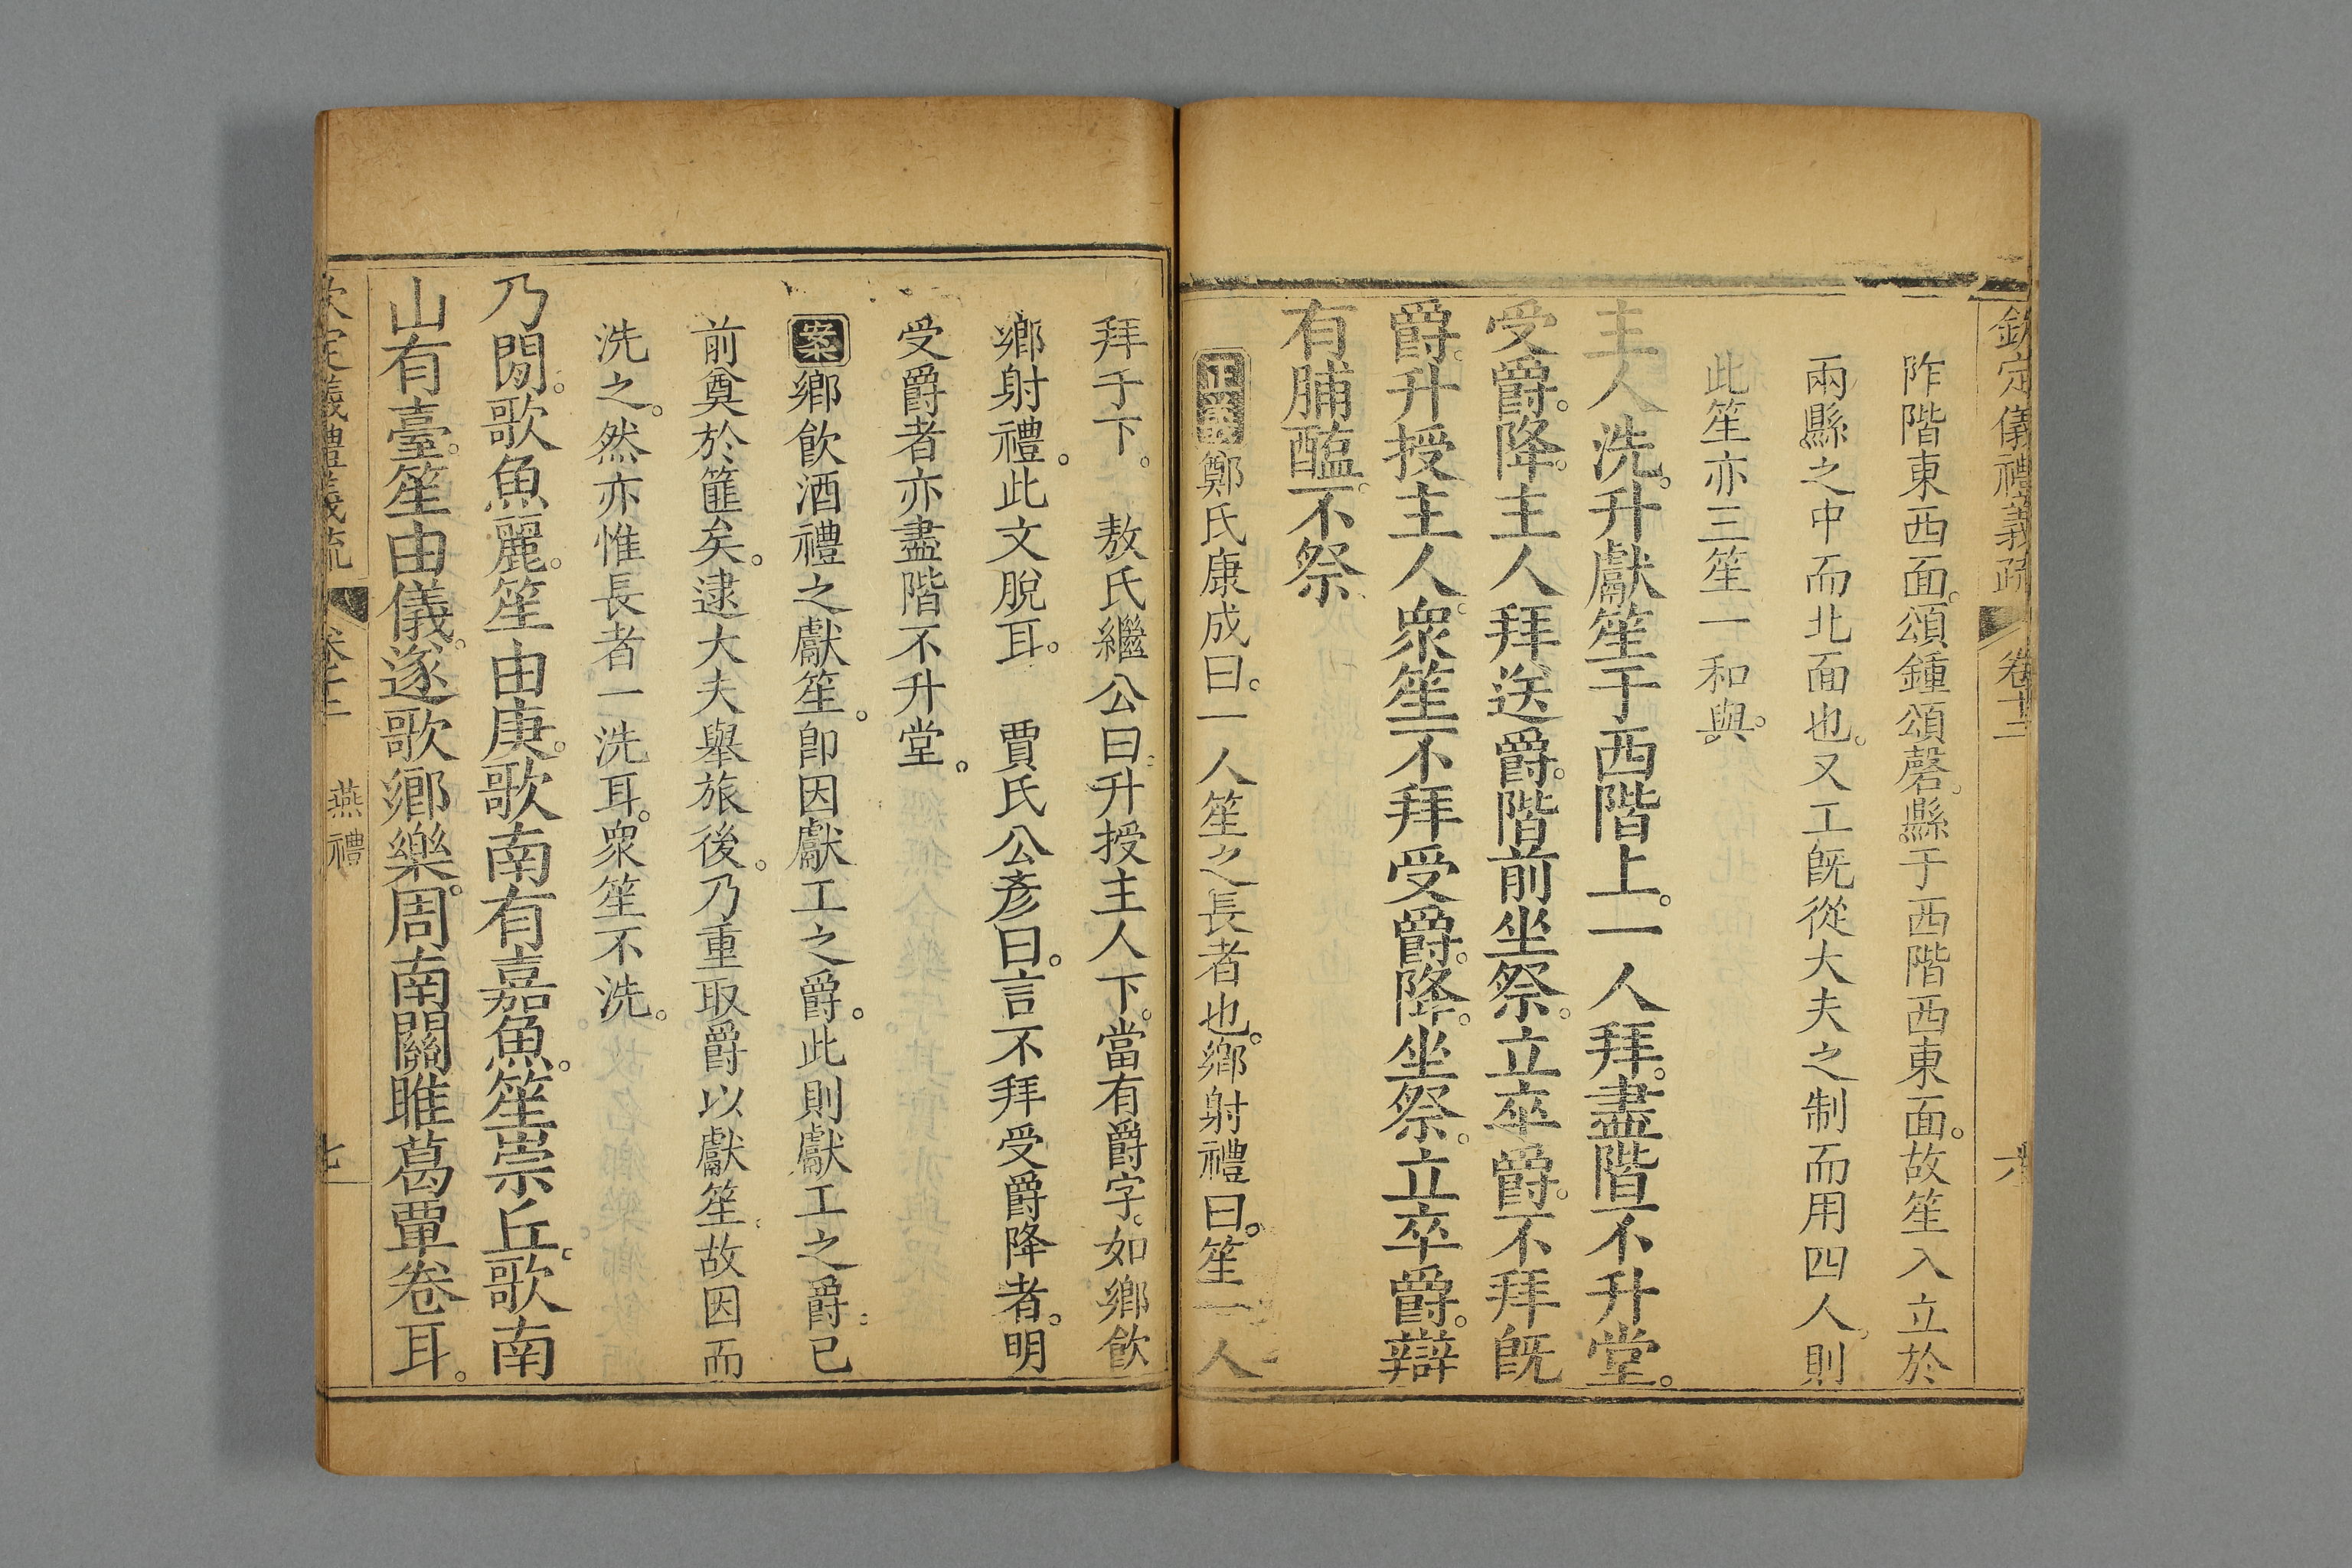 欽定儀禮義疏 卷十二 六
阼階東西面。頌鍾頌磬。縣于西階西東面。故笙入立於
兩縣之中而北面也。又工既從大夫之制而用四人。則
此笙亦三笙一和與。
主人洗。升獻笙于西階上。一人拜。盡階不升堂。
受爵。降。主人拜送爵。階前坐祭。立卒爵。不拜既
爵。升授主人。眾笙不拜受爵。降。坐祭。立卒爵。辯
有脯醢。不祭
正義鄭氏康成曰。一人笙之長者也。鄉射禮曰。笙一人
拜于下。 敖氏繼公曰。升授主人下。當有爵字。如鄉飲
鄉射禮。此文脫耳。 賈氏公彥曰。言不拜受爵降者。明
受爵者亦盡階不升堂。
案鄉飲酒禮之獻笙。卽因獻工之爵。此則獻工之爵。已
前奠於篚矣。逮大夫舉旅後。乃重取爵以獻笙。故因而
洗之。然亦惟長者一洗耳。眾笙不洗。
乃閒。歌魚麗。笙由庚。歌南有嘉魚。笙崇丘。歌南
山有臺。笙由儀。遂歌鄉樂。周南關雎葛覃卷耳。
欽定儀禮義疏 卷十二 燕禮 七